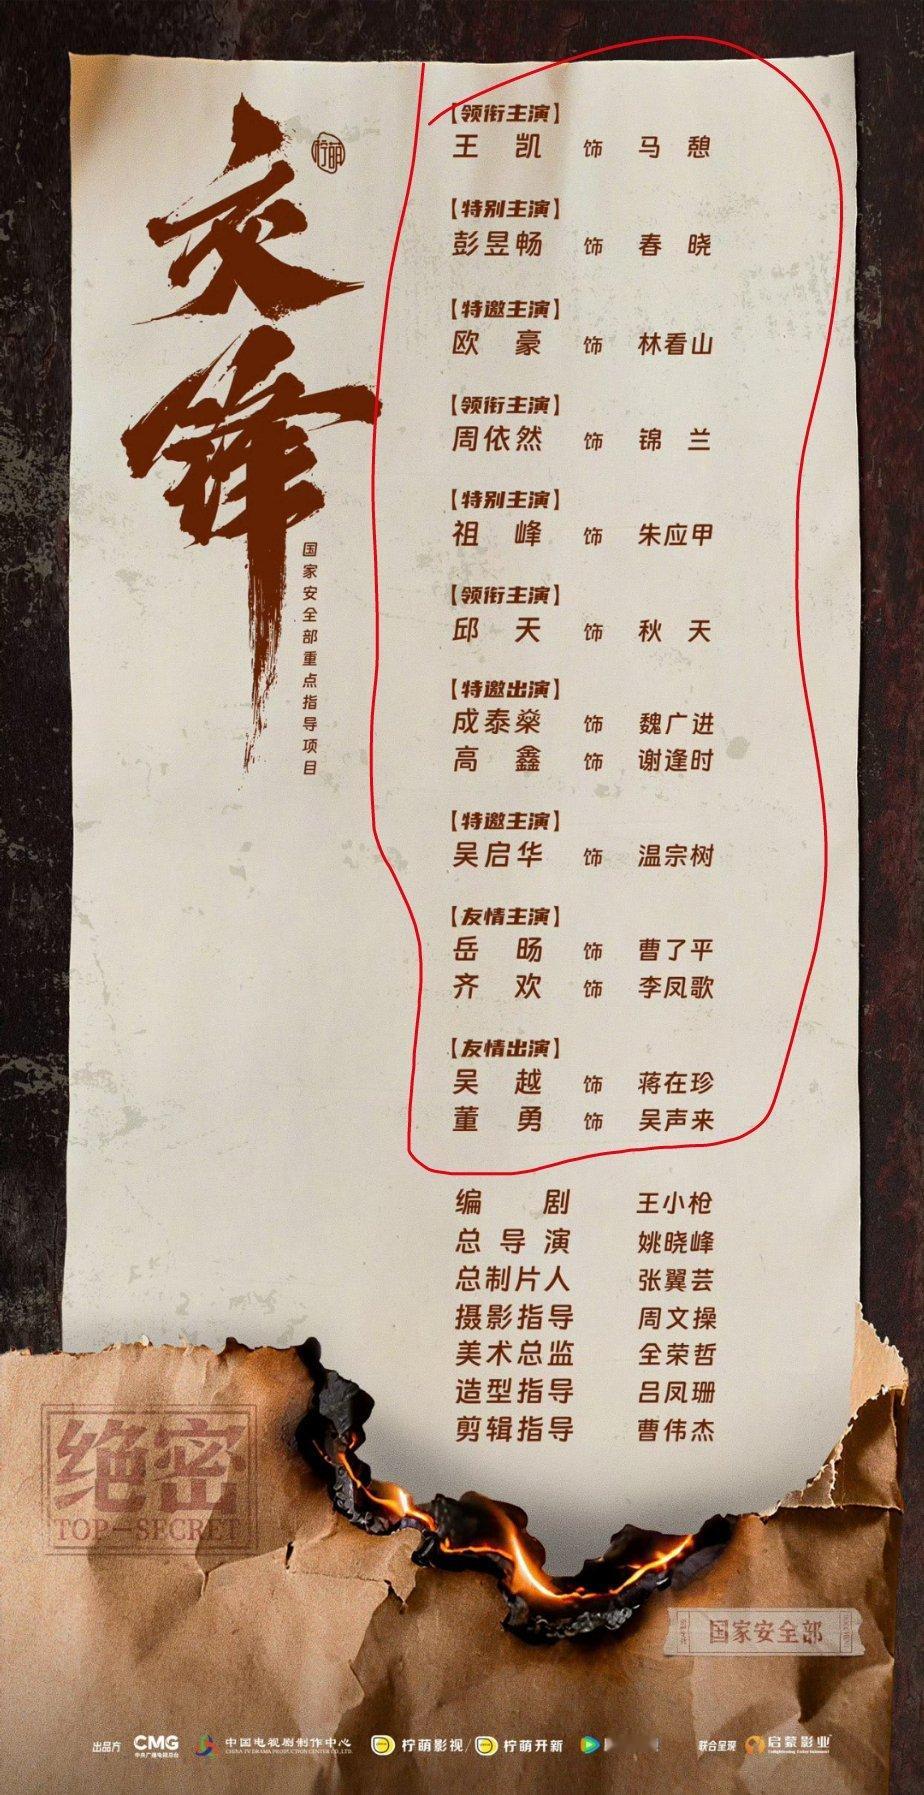 交锋
柠萌
国家安全部重点指导项目
【领衔主演】
王凯 饰 马憩
【特别主演】
彭昱畅 饰 春晓
【特邀主演】
欧豪 饰 林看山
【领衔主演】
周依然 饰 锦兰
【特别主演】
祖峰 饰 朱应甲
【领衔主演】
邱天 饰 秋天
【特邀出演】
成泰燊 饰 魏广进
高鑫 饰 谢逢时
【特邀主演】
吴启华 饰 温宗树
【友情主演】
岳旸 饰 曹了平
齐欢 饰 李凤歌
【友情出演】
吴越 饰 蒋在珍
董勇 饰 吴声来
编剧 王小枪
总导演 姚晓峰
总制片人 张翼芸
摄影指导 周文操
美术总监 全荣哲
造型指导 吕凤珊
剪辑指导 曹伟杰
绝密
TOP-SECRET
国家安全部
出品方 CMG 中央广播电视总台 中国电视剧制作中心 CHINA TV DRAMA PRODUCTION CENTER CO.,LTD. 柠萌影视/柠萌开新 联合呈现 启蒙影业